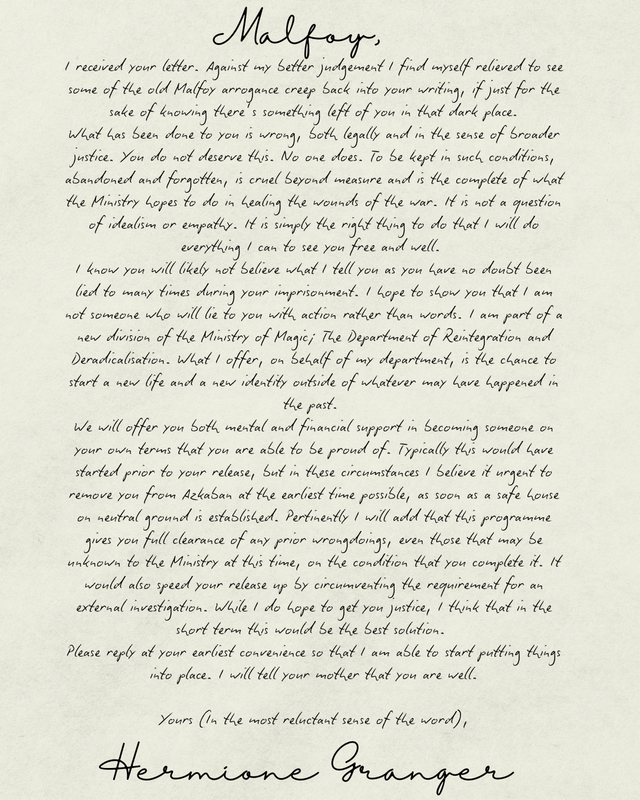 Malfoy,
I received your letter. Against my better judgement I find myself relieved to see
some of the old Malfoy arrogance creep back into your writing, if just for the
sake of knowing there's something left of you in that dark place.
What has been done to you is wrong, both legally and in the sense of broader
justice. You do not deserve this. No one does. To be kept in such conditions,
abandoned and forgotten, is cruel beyond measure and is the complete of what
the Ministry hopes to do in healing the wounds of the war. It is not a question
of idealism or empathy. It is simply the right thing to do that I will do
everything I can to see you free and well.
I know you will likely not believe what I tell you as you have no doubt been
lied to many times during your imprisonment. I hope to show you that I am
not someone who will lie to you with action rather than words. I am part of a
new division of the Ministry of Magic; The Department of Reintegration and
Deradicalisation. What I offer, on behalf of my department, is the chance to
start a new life and a new identity outside of whatever may have happened in
the past.
We will offer you both mental and financial support in becoming someone on
your own terms that you are able to be proud of. Typically this would have
started prior to your release, but in these circumstances I believe it urgent to
remove you from Azkaban at the earliest time possible, as soon as a safe house
on neutral ground is established. Pertinently I will add that this programme
gives you full clearance of any prior wrongdoings, even those that may be
unknown to the Ministry at this time, on the condition that you complete it. It
would also speed your release up by circumventing the requirement for an
external investigation. While I do hope to get you justice, I think that in the
short term this would be the best solution.
Please reply at your earliest convenience so that I am able to start putting things
into place. I will tell your mother that you are well.
Yours (In the most reluctant sense of the word),
Hermione Granger